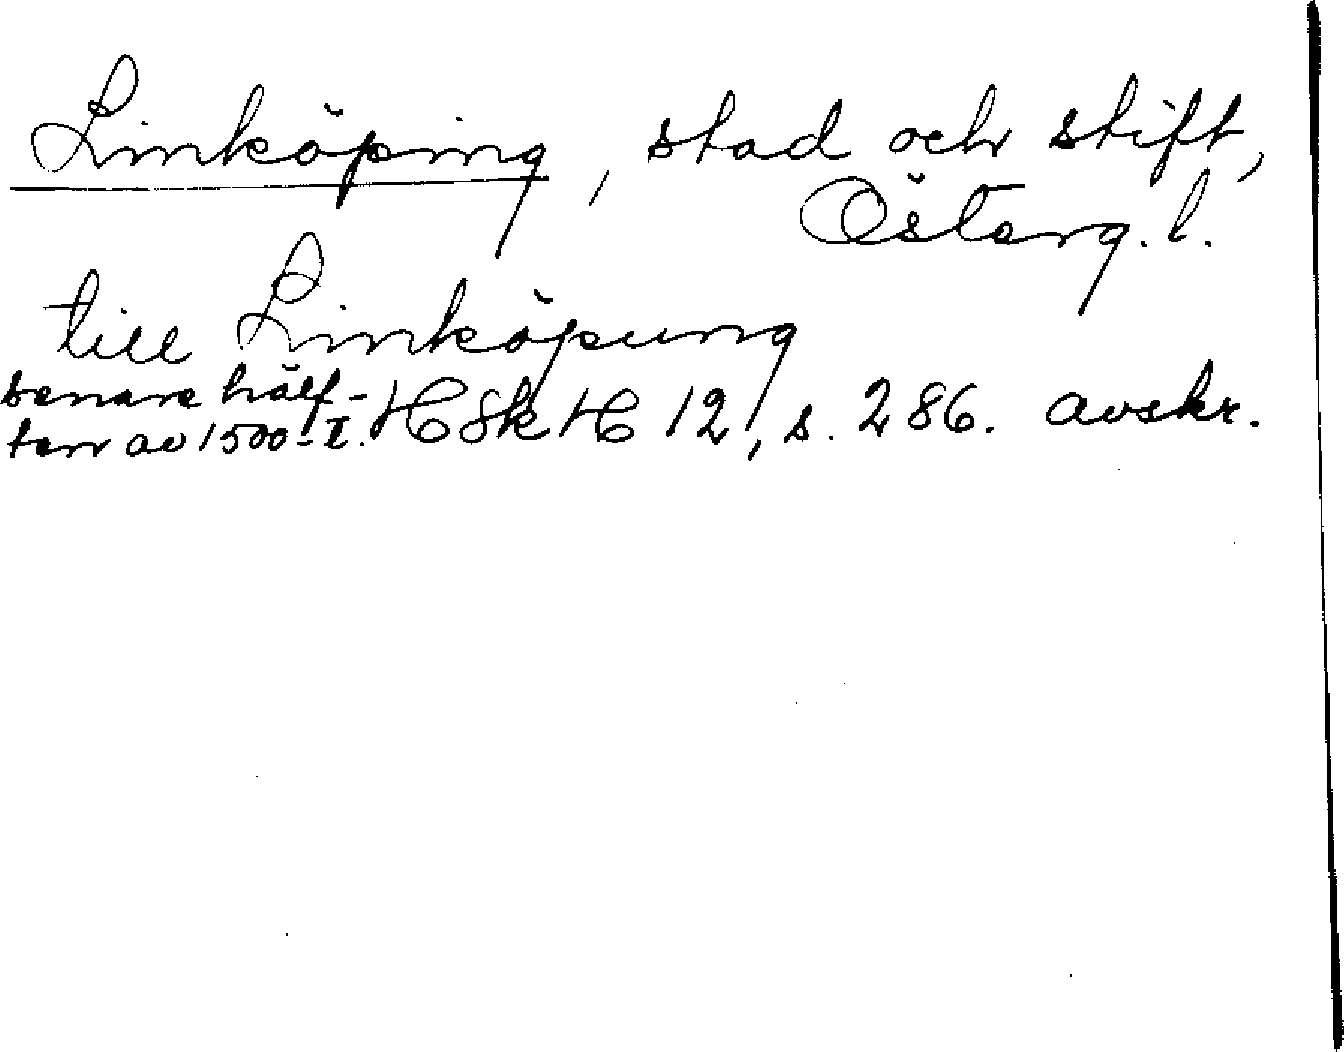 Linköping, stad och stift,
Österg. l.
till Linköpung
senare hälf-
ten av 1500-t. HSkH 12, s. 286. avskr.